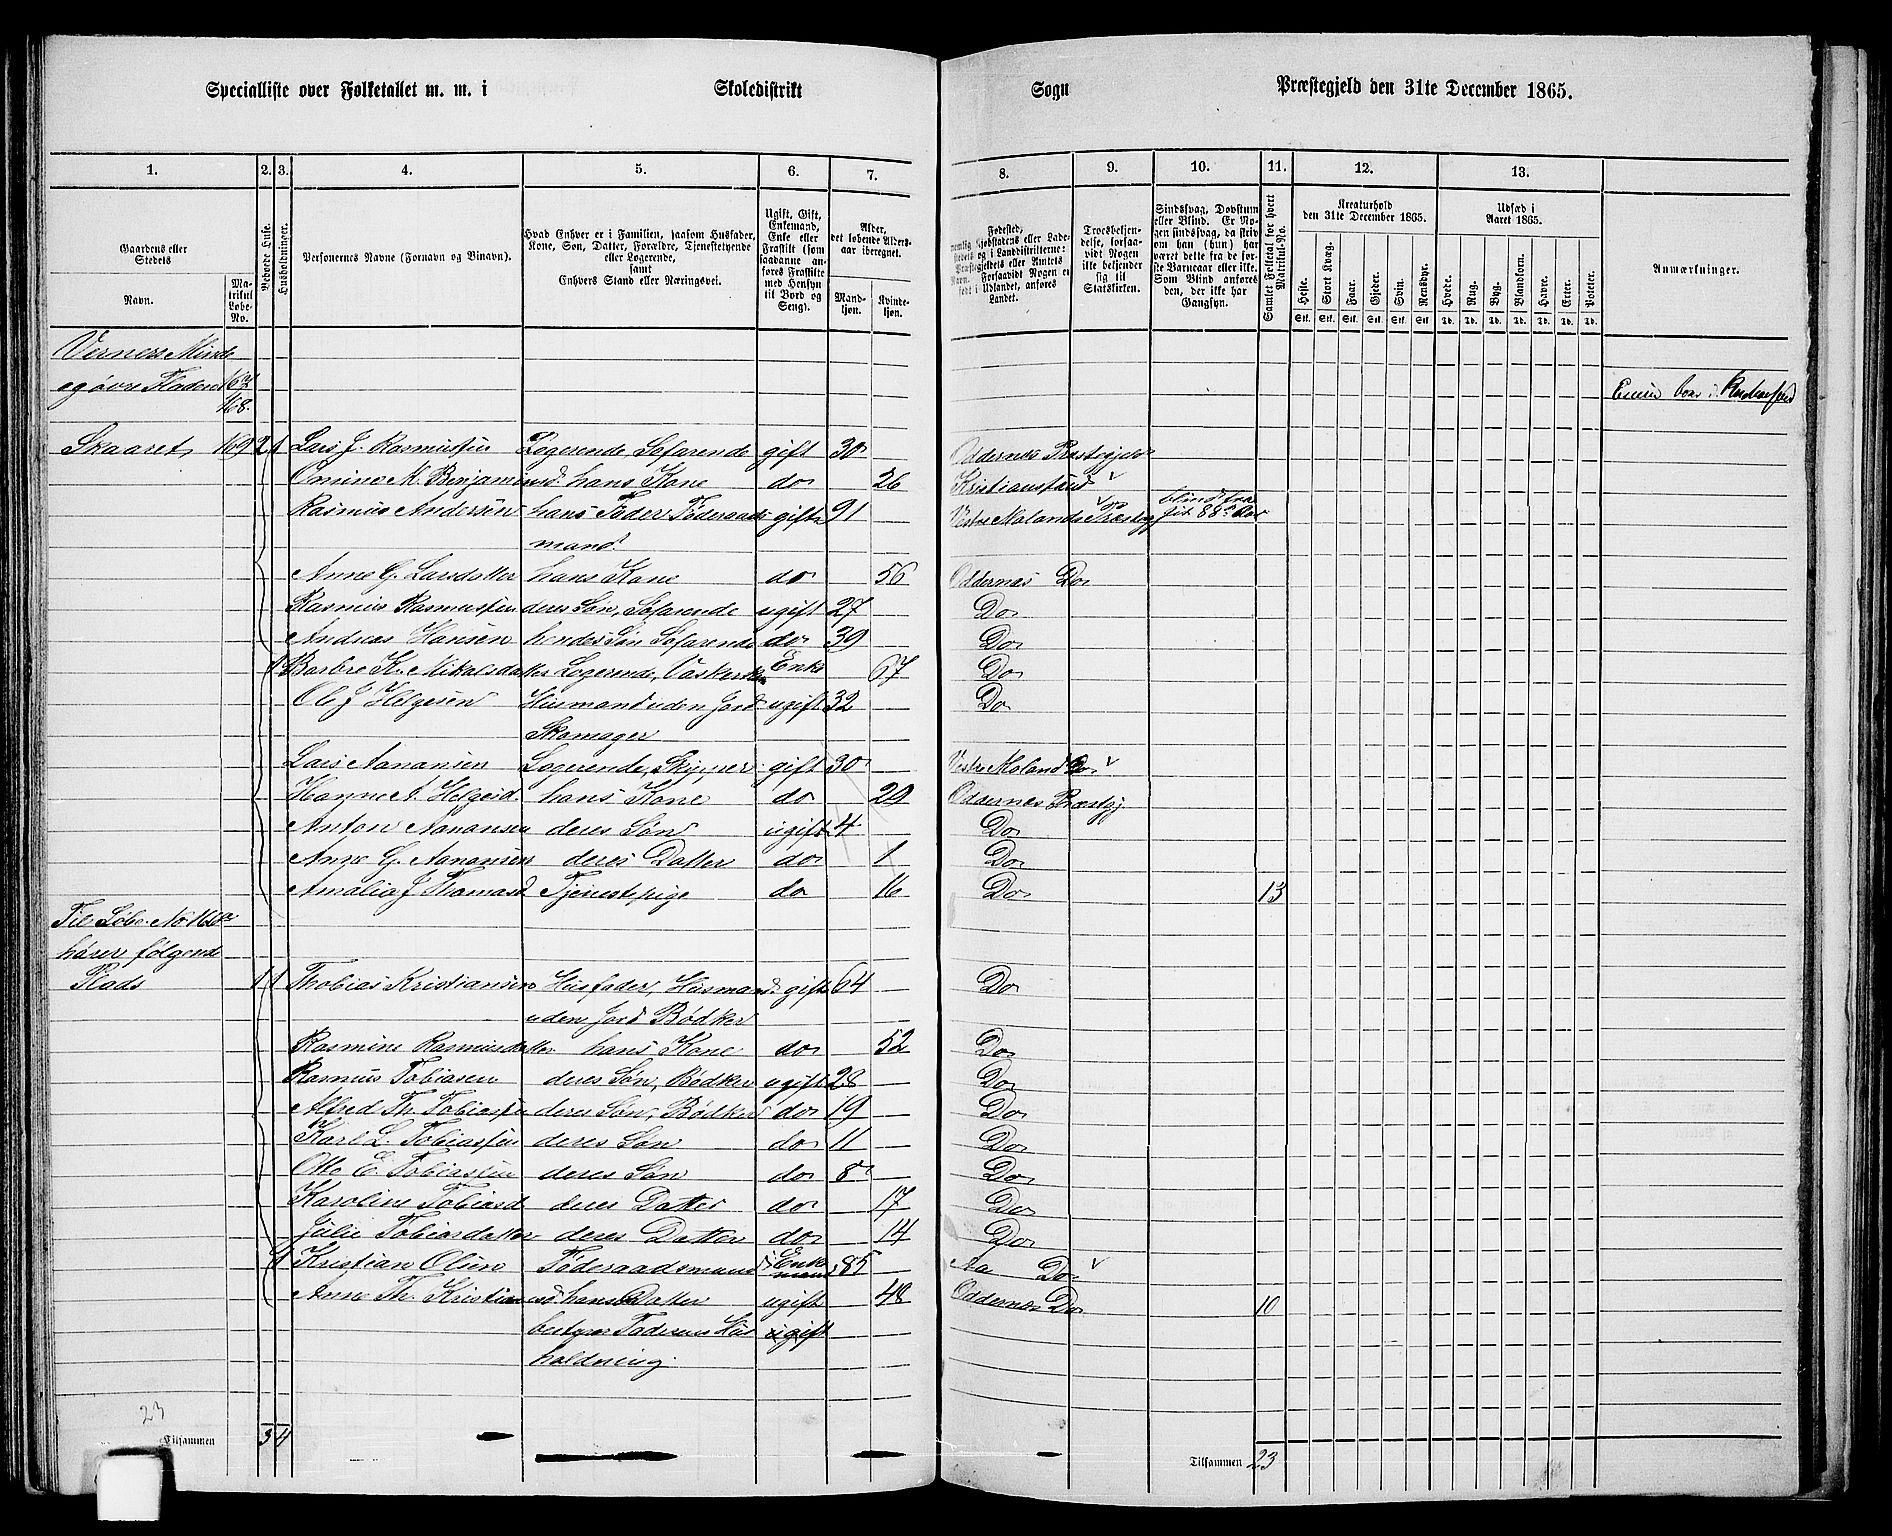 Specialliste over Folketallet m. m. i Skoledistrikt Sogn Præstegjeld den 31te December 1865.
1. 2. 3. 4. 5. 6. 7. 8. 9. 10. 11. 12. 13.
Gaardens eller Stedets Navn. Matrikul Løbe-No.
Bebоede Huse.
Husholdninger.
Personernes Navne (Fornavn og Tilnavn).
Hvad Enhver er i Familien, saasom Husfader, Kone, Søn, Datter, Forældre, Tjenestetyende eller Logerende, samt Enhvers Stand eller Næringsvei.
Ugift, Gift, Enkemand, Enke eller Fraskilt (som saadanne anføres Fraskilte med Hensyn til Bord og Seng).
Alder, det løbende Aldersaar iberegnet. Mandkjøn. Kvindekjøn.
Troesbekjendelse, forsaavidt Nogen ikke bekjender sig til Statskirken.
Sindssvag, Døvstum eller Blind. Er Nogen sindssvag, da skrives om han (hun) har været dette fra de første Barneaar eller ikke. Som Blind anføres den, der ikke har Gangsyn.
Samlet Folketal for hvert Matrikul-No.
Kreaturhold den 31te December 1865.
Heste. Stort Kvæg. Faar. Gjeder. Svin. Rensdyr.
Udsæd i Aaret 1865.
Hvede. Rug. Byg. Blandkorn. Havre. Erter. Poteter.
Anmærkninger.
Stk. Stk. Stk. Stk. Stk. Stk. Td. Td. Td. Td. Td. Td. Td.
Verners Minde
og øvre Fladen 167 168.
Skaaret 169 2 1 Lars J. Rasmussen Logerende, Søfarende gift 30 Oddernes Præstegjeld
Omine M. Benjaminsd. hans Kone do 26 Kristianssand
Rasmus Andersen hans Fader Føderaads gift 91 Vestre Molands Præstegj blind fra sit 88de Aar
mand.
Anne G. Larsdatter hans Kone do 56 Oddernes Do
Rasmus Rasmussen deres Søn, Søfarende ugift 27 Do
Andreas Hansen hendes Søn Søfarende do 39 Do
1 Barbre K. Mikalsdatter Logerende, Vaskerske Enke 67 Do
Ole J Helgesen Husmand uden Jord ugift 32 Do
Skomager
Lars Aanansen Logerende, Skipper gift 30 Vestre Moland Do
Hanne A. Helgesd. hans Kone do 29 Oddernes Præstgj.
Anton Aanansen deres Søn ugift 4 Do
Anne G. Aanansen deres Datter do 1 Do
Amalia J Thomasd Tjenestepige do 16 Do 13
Til Løbe-No
hører følgende
Plads 1 1 Thobias Kristiansen Husfader, Husmand gift 64 Do
uden Jord Bødker
Rasmine Rasmusdatter hans Kone do 52 Do
Rasmus Tobiasen deres Søn, Bødker ugift 28 Do
Alfred Th. Tobiassen deres Søn, Bødker do 19 Do
Karl L. Tobiassen deres Søn do 11 Do
Otto E. Tobiassen deres Søn do 8 Do
Karoline Tobiasd deres Datter do 17 Do
Julie Tobiasdatter deres Datter do 14 Do
1 Kristian Olsen Føderaadsmand Enkemand 85 Aa Do
Anne Th. Kristiansd hans Datter ugift 48 Oddernes Do 10
bestyrer Faderens Hus ugift
holdning.
23
Tilsammen 3 4 Tilsammen 23